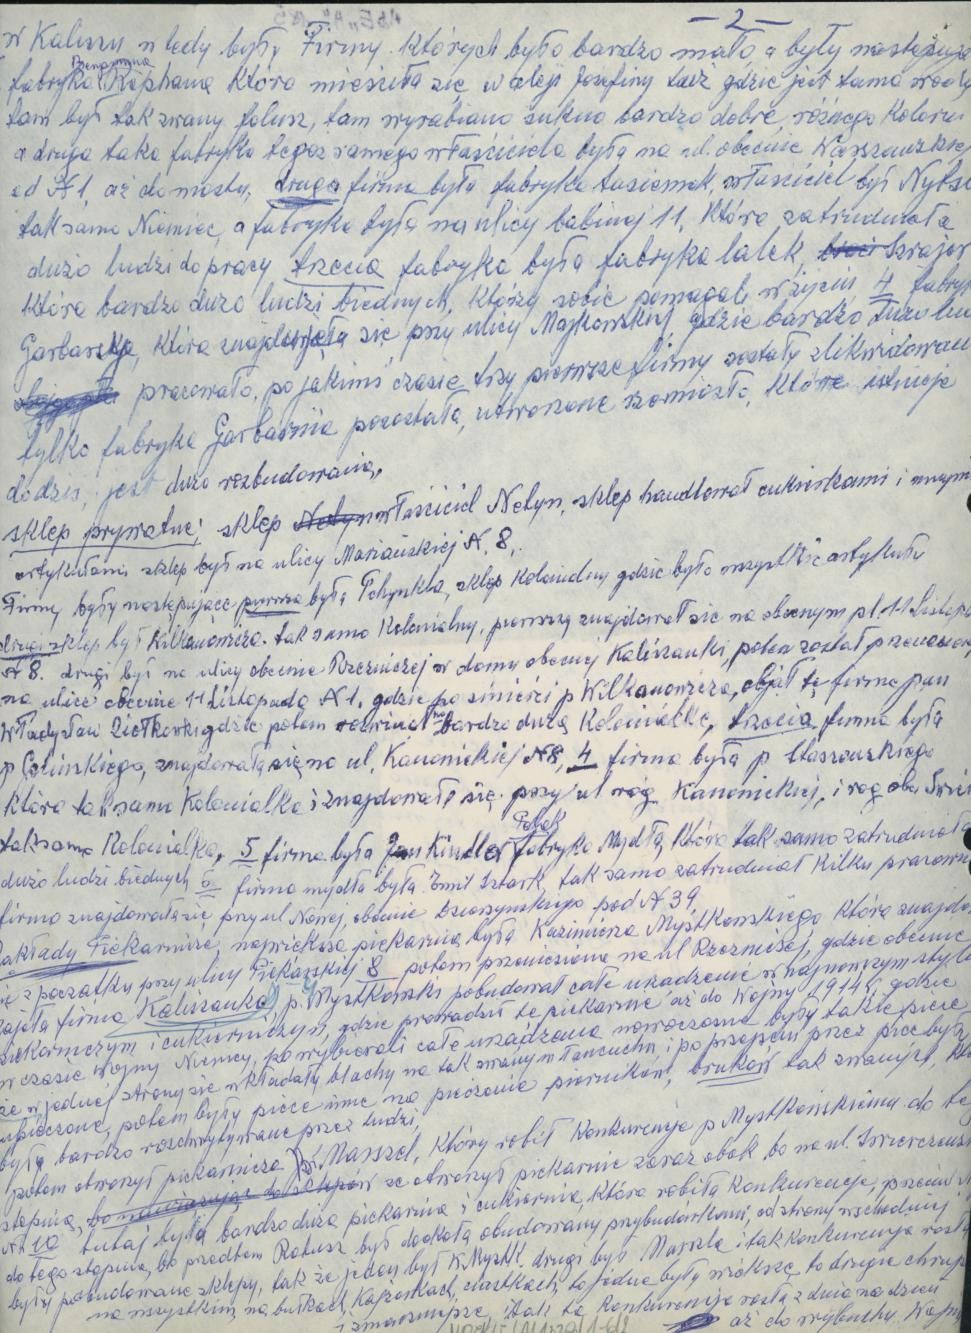 — 2 —
w Kaliszu wtedy były Firmy. których było bardzo mało a były następujące
Beniamina
fabryka Rephana która mieściła się w aleji Josefiny tuż gdzie jest tama wodna
tam był tak zwany folusz, tam wyrabiano sukno bardzo dobre, różnego koloru
a druga taka fabryka tegoż samego właściciela była na ul. obecnie Warszawskiej
od N 1, aż do mostu, druga firma była fabryka tasiemek, właściciel był
tak samo Niemiec, a fabryka była na ulicy babinej 11, która zatrudniała
dużo ludzi do pracy trzecia fabryka była fabryka lalek, Szrajer
która bardzo dużo ludzi biednych, którzy sobie pomagali w życiu 4 fabryka
Garbarska, która znajdowała się przy ulicy Majkowskiej, gdzie bardzo dużo ludzi
pracowało, po jakimś czasie trzy pierwsze firmy zostały zlikwidowane
tylko fabryka Garbarnia pozostała, utworzone rzemiosło, które istnieje
do dziś, jest dużo rozbudowania,
sklep prywatne; sklep właściciel Netyn, sklep handlował cukierkami i innymi
artykułami, sklep był na ulicy Mariańskiej N. 8,
Firmy były następujące pierwsza była Pchynkla, sklep Kolonialny gdzie było wszystkie artykuły
drugi sklep był Wilkanowicza. tak samo Kolonialny, pierwszy znajdował się na obecnym pl. 11 Listopada
N 8. drugi był na ulicy obecnie Rzeźniczej w domu obecnej Kaliszanki, potem został przeniesiony
na ulicę obecnie 11 Listopada N 1, gdzie po śmierci p Wilkanowicza, objął tę firmę pan
Władysław Ziółkowski gdzie potem rozwinął bardzo dużą Kolonialkę, trzecia firma była
p Golińskiego, znajdowała się na ul, Kanonickiej N 8, 4 firma była p Staszewskiego
która tak samo Kolonialka i znajdowała się przy ul róg Kanonickiej, i róg
tak samo Kolonialka, 5 firma była Jan Kindler fabryka Mydła, która tak samo zatrudniała
dużo ludzi biednych 6 firma mydła była Emil Sztark, tak samo zatrudniał kilku pracowników
firma znajdowała się przy ul Nowej, obecnie Dzierżyńskiego pod N 39
Zakłady Piekarnicze, największa piekarnia była Kazimierza Mystkowskiego która znajdowała
się z początku przy ulicy Piekarskiej 8 potem przeniesiona na ul Rzeźniczej, gdzie obecnie
zajęła firma Kaliszanka, p. Mystkowski pobudował całe urządzenie w najnowszym stylu
piekarniczym i cukierniczym, gdzie prowadził te piekarnie aż do Wojny 1914 r, gdzie
w czasie Wojny Niemcy, powybierali całe urządzenia nowoczesne były takie piece
że w jednej strony się wkładały blachy na tak zwanym łańcuchu i po przejściu przez piec były
upieczone, potem były piece inne na pieczenie pierników, bruków tak zwanych, które
były bardzo rozchwytywane przez ludzi,
potem otworzył piekarnicze p. Marszel, który robił konkurencje p Mystkowskiemu do tego
stopnia, że otworzył piekarnie zaraz obok bo na ul.
N 10 tutaj była bardzo duża piekarnia i cukiernia, która robiła konkurencje,
do tego stopnia, bo przedtem Ratusz był dookoła obudowany przybudówkami, od strony wschodniej
były pobudowane sklepy, tak że jeden był K. Mystk. drugi był Marszla i tak konkurencja rosła
na wszystkim, na bułkach, Kajzerkach, ciastkach, to jedne były większe to drugie
i smaczniejsze, i tak ta konkurencja rosła z dnia na dzień
aż do wybuchu Wojny